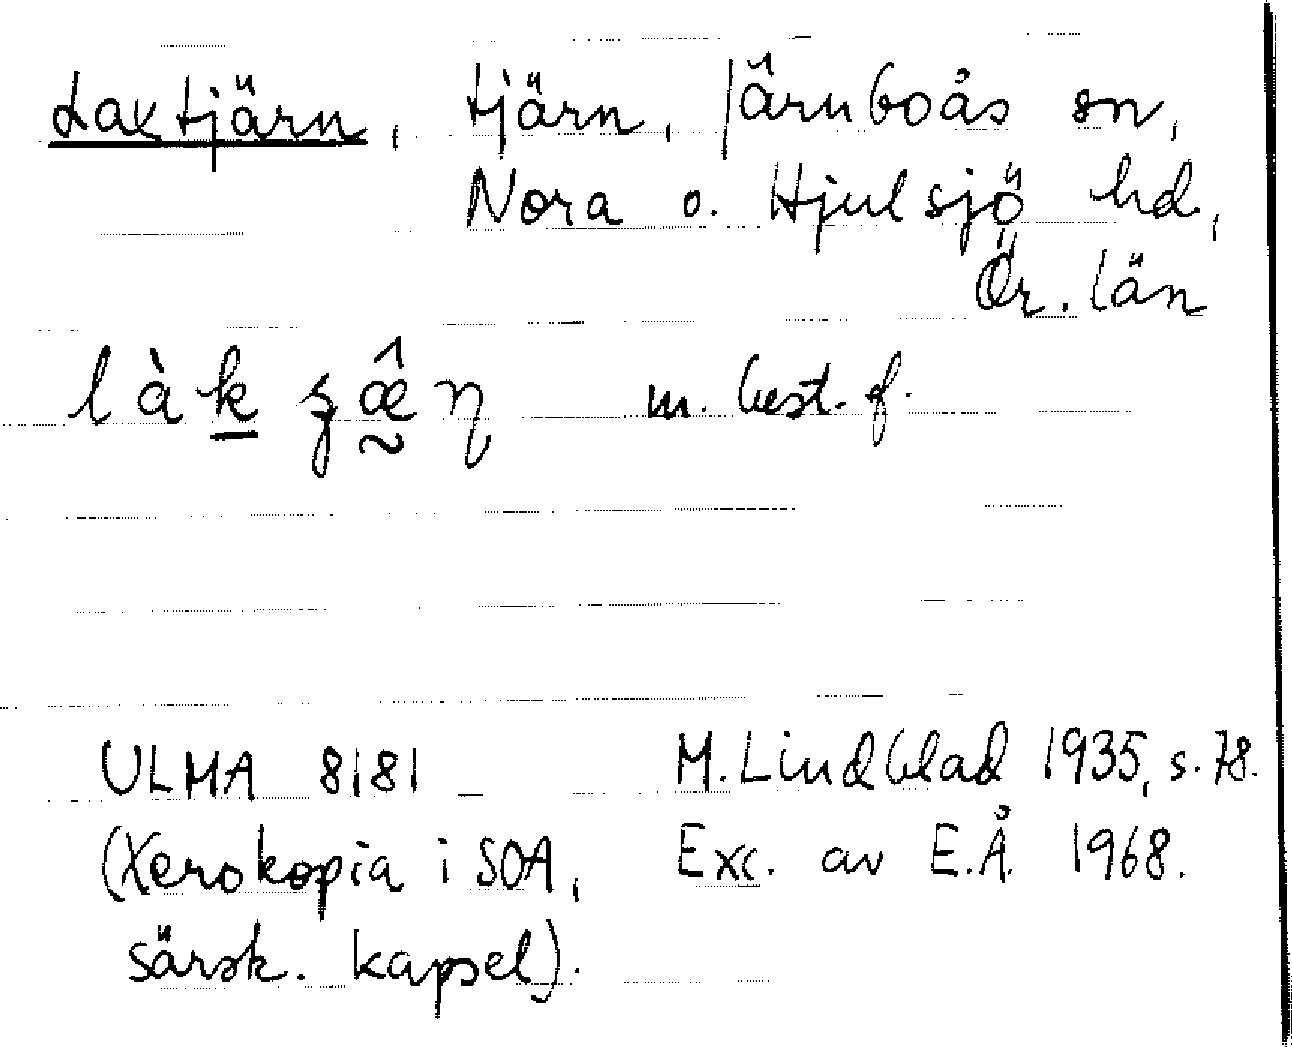 Laxtjärn, tjärn, Järnboås sn,
Nora o. Hjulsjö hd,
Ör. län
m. best. f.
ULMA 8181 M. Lindblad 1935, s. 78.
(Xerokopia i SOA, Exc. av E.Å. 1968.
särsk. kapsel).